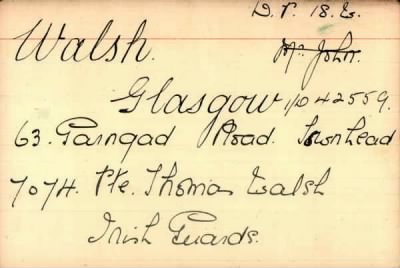 D.P. 18. E.
Walsh. Mr. John.
Glasgow. 1/042559.
63. Garngad Road. Townhead
7074. Pte. Thomas Walsh
Irish Guards.